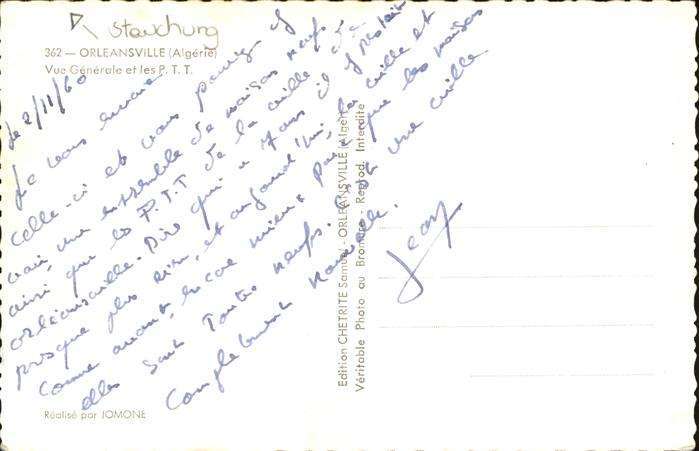 362 — ORLEANSVILLE (Algérie)
Vue Générale et les P. T. T.
le 2/11/60
Je vous envoie
celle-ci et vous pouvez y
voir, une ensemble de maisons neufs
ainsi que les P.T.T de la ville de
orléansville. Dire qui a 7 ans il y restait
presque plus rien, et aujourd'hui, la ville est
comme avant, encore mieux parce que les maisons
elles sont toutes neufs. une ville
complètement nouvelle.
Jean
Edition CHETRITE Samuel - ORLEANSVILLE (Algérie)
Véritable Photo au Bromure - Reprod. Interdite
Réalisé par JOMONE